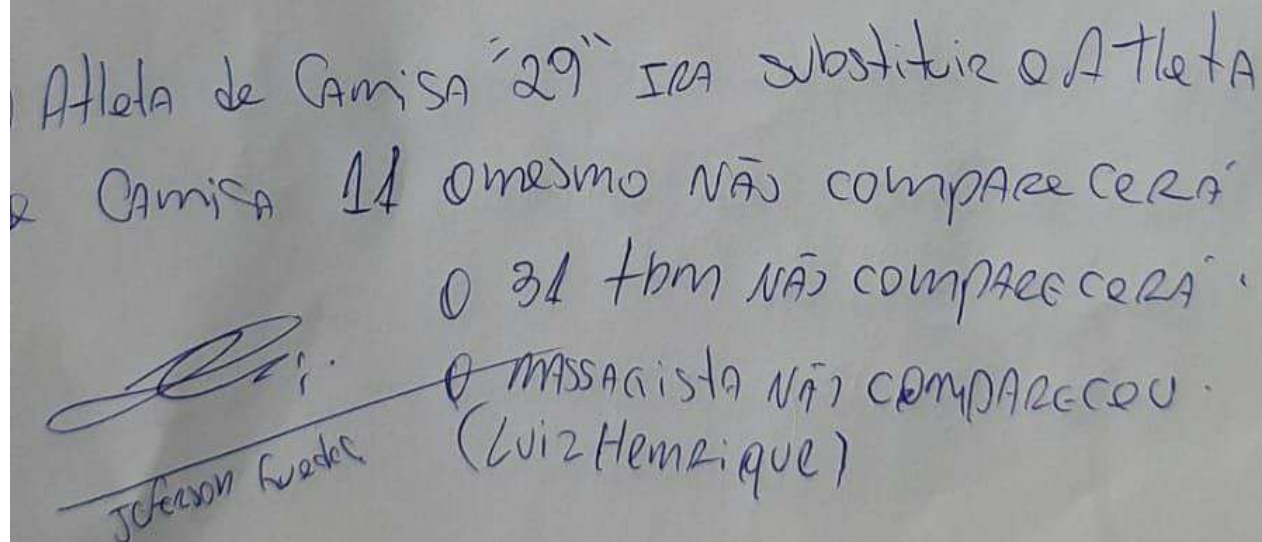 Atleta de Camisa "29" IRA substituir o Atleta
Camisa 11 o mesmo NÃO compareCERÁ
O 31 tbm NÃO comparecerá.
O MASSAGISTA NÃO COMPARECEU.
(Luiz Henrique)
Jeferson Guedes